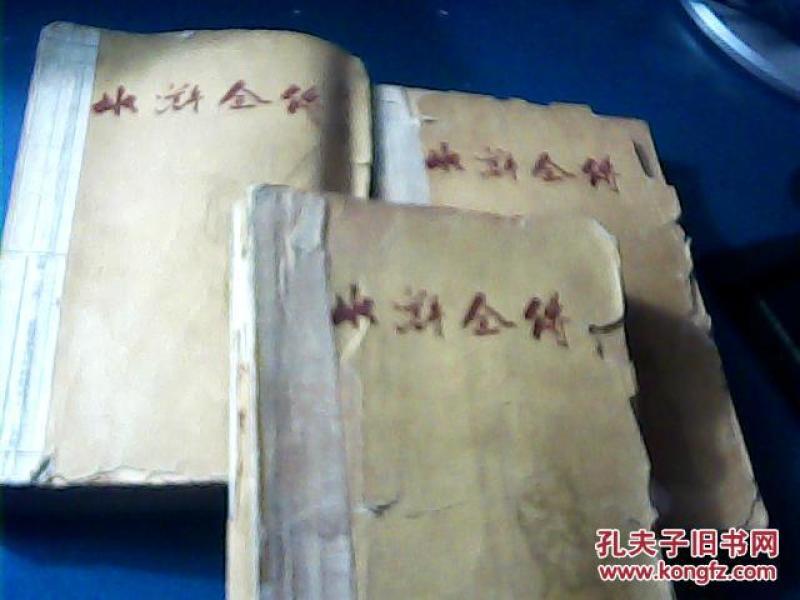 水浒全传
水浒全传
水浒全传
孔夫子旧书网
www.kongfz.com